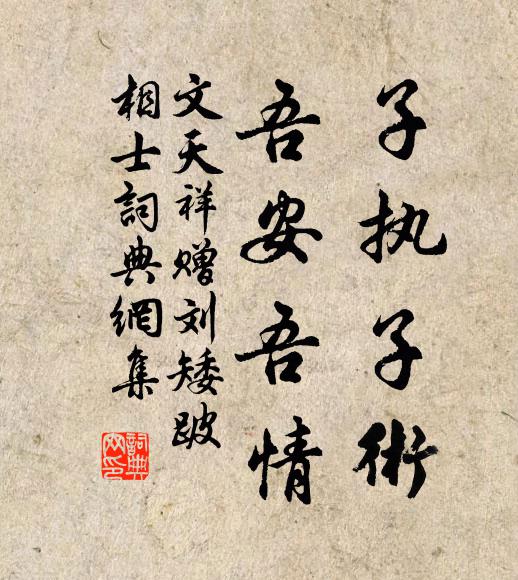 子执子術
吾安吾情
文天祥赠刘矮跛
相士詞典網集
詞典网印